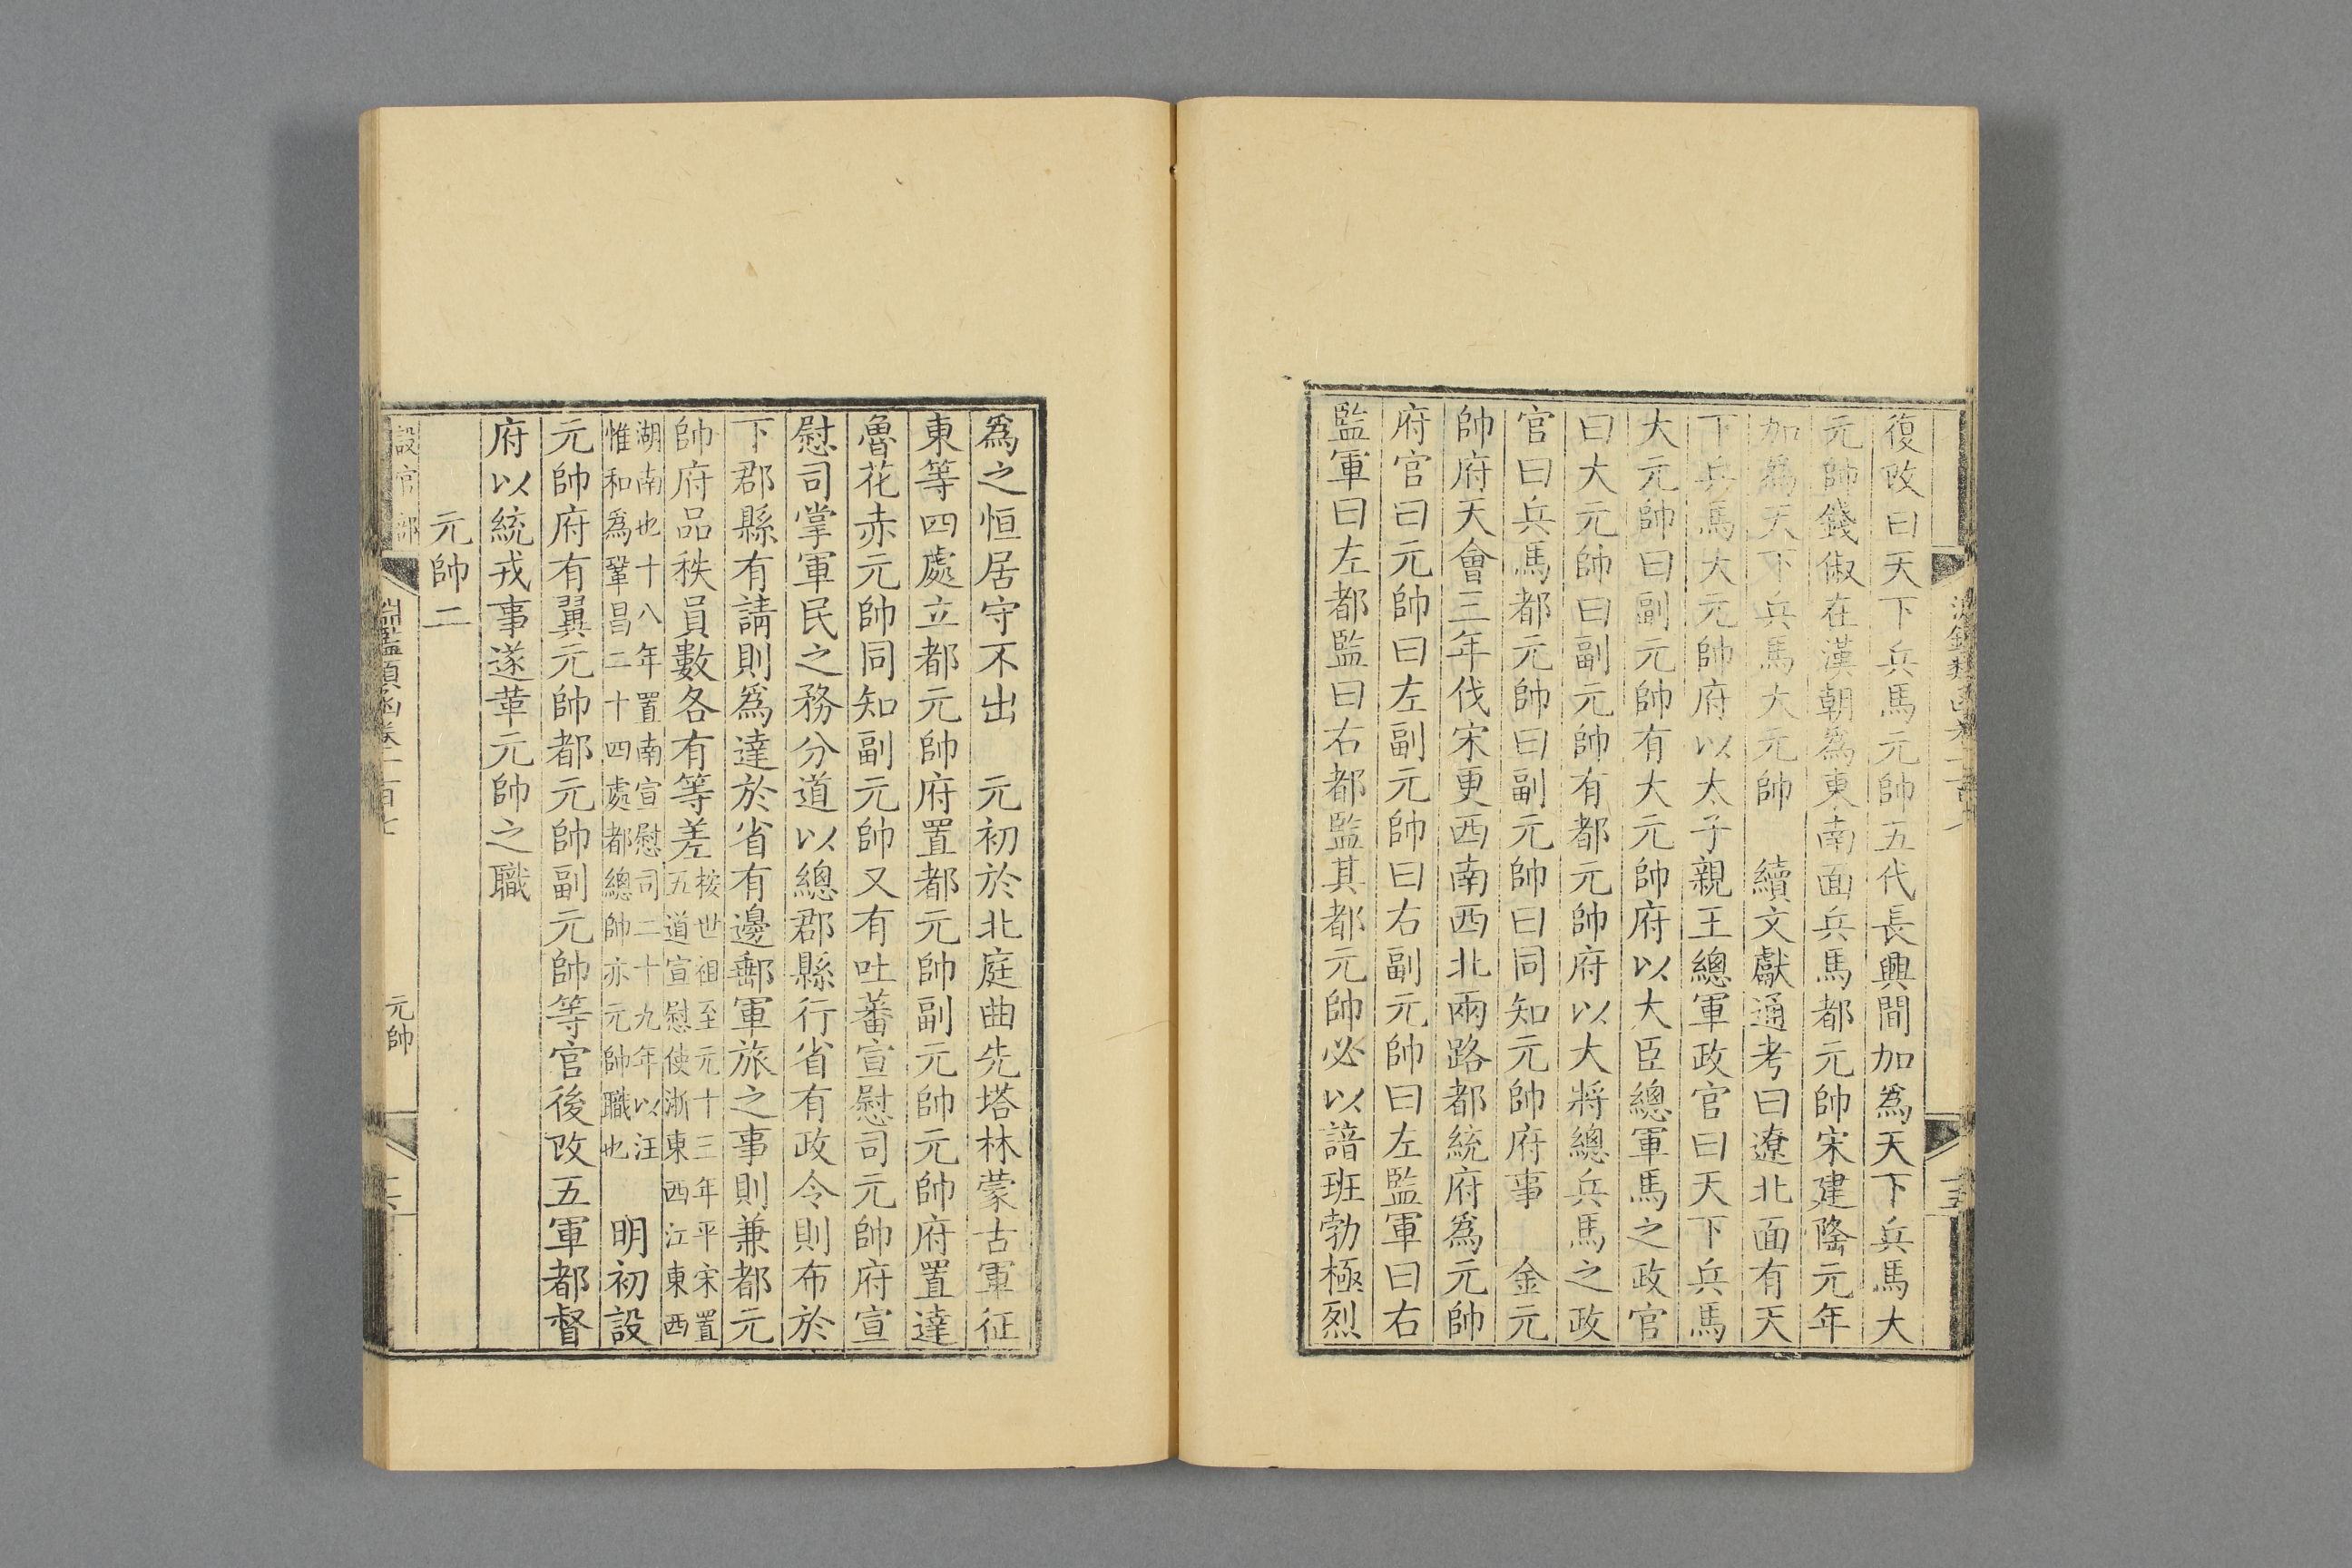 復改曰天下兵馬元帥五代長興間加爲天下兵馬大
元帥錢俶在漢朝爲東南面兵馬都元帥宋建隆元年
加爲天下兵馬大元帥　續文獻通考曰遼北面有天
下兵馬大元帥府以太子親王總軍政官曰天下兵馬
大元帥曰副元帥有大元帥府以大臣總軍馬之政官
曰大元帥曰副元帥有都元帥府以大將總兵馬之政
官曰兵馬都元帥曰副元帥曰同知元帥府事　金元
帥府天會三年伐宋更西南西北兩路都統府爲元帥
府官曰元帥曰左副元帥曰右副元帥曰左監軍曰右
監軍曰左都監曰右都監其都元帥必以諳班勃極烈
爲之恒居守不出　元初於北庭曲先塔林蒙古軍征
東等四處立都元帥府置都元帥副元帥元帥府置達
魯花赤元帥同知副元帥又有吐蕃宣慰司元帥府宣
慰司掌軍民之務分道以總郡縣行省有政令則布於
下郡縣有請則爲達於省有邊郵軍旅之事則兼都元
帥府品秩員數各有等差
按世祖至元十三年平宋置
五道宣慰使浙東西江東西
湖南也十八年置南宣慰司二十九年以汪
惟和爲鞏昌二十四處都總帥亦元帥職也
明初設
元帥府有翼元帥都元帥副元帥等官後改五軍都督
府以統戎事遂革元帥之職
元帥二
設官部
淵鑑類函卷一百七
元帥
十六